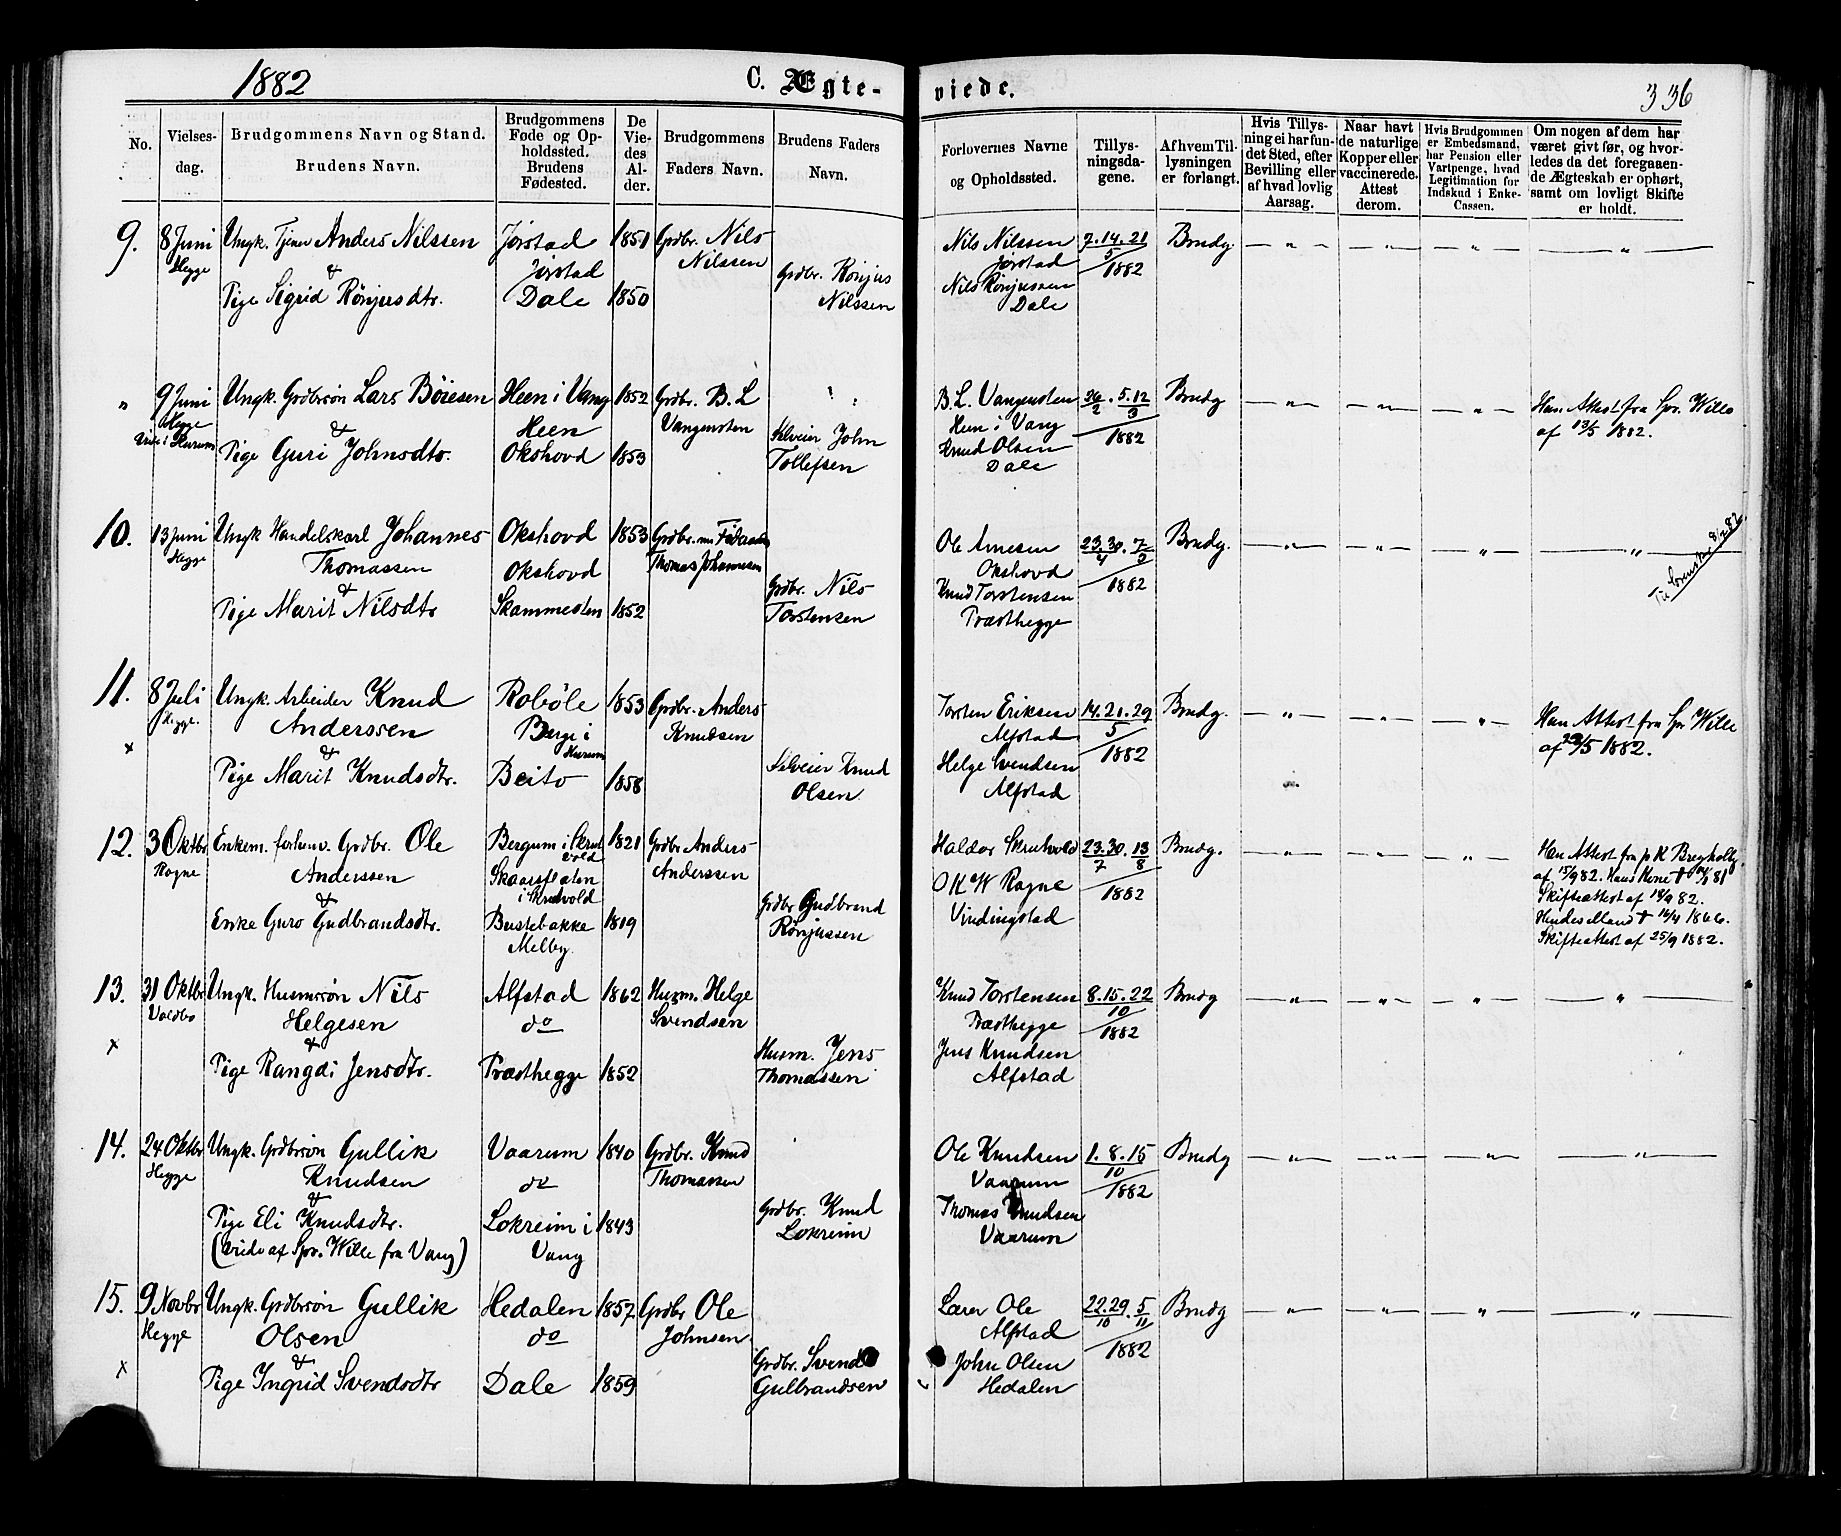 1882
C. Ægte-
viede.
336
No.
Vielses-
dag.
Brudgommens Navn og Stand.
Brudens Navn.
Brudgommens
Føde og Op-
holdssted.
Brudens
Fødested.
De
Vie-
des
Al-
der.
Brudgommens
Faders Navn.
Brudens Faders
Navn.
Forlovernes Navne
og Opholdssted.
Tillys-
ningsda-
gene.
Af hvem Til-
lysningen
er forlangt.
Hvis Tillys-
ning ei har fun-
det Sted, efter
Bevilling eller
af hvad lovlig
Aarsag.
Naar havt
de naturlige
Kopper eller
vaccinerede.
Attest
derom.
Hvis Brudgommen
er Embedsmand,
har Pension eller
Vartpenge, hvad
Legitimation for
Indskud i Enke-
Cassen.
Om nogen af dem har
været givt før, og hvor-
ledes da det foregaaen-
de Ægteskab er ophørt,
samt om lovligt Skifte
er holdt.
9.
8 Juni
Hegge
Ungk. Tjener Anders Nilssen
&
Pige Sigrid Rønjusdtr.
Jørstad
Jørstad
Dale
1851
1850
Grdbr. Nils
Nilssen
Grdbr. Rønjus
Nilssen
Nils Nilssen
Jørstad
Nils Rønjussen
Dale
7.14.21
5
1882
Brudg.
— „ — — „ — — „ — — „ —
„
9 Juni
Hegge
Viet i Hurum
Ungk. Grdbrsøn Lars Bøiesen
&
Pige Guri Johnsdtr.
Heen i Vang
Heen
Okshovd
1852
1853
Grdbr. B. L
Vangensten
Selveier John
Tollefsen
B. L. Vangensten
Heen i Vang
Knud Olsen
Dale
26/2 . 5.12/3
1882
Brudg
— „ — — „ — — „ —
Han Attest fra Spr. Wille
af 13/5 1882.
10.
13 Juni
Hegge
Ungk Handelskarl Johannes
Thomassen
&
Pige Marit Nilsdtr
Okshovd
Okshovd
Skammesten
1853
1852
Grdbr. nu Føderaadsm
Thomas Johannesen
Grdbr. Nils
Torstensen
Ole Arnesen
Okshovd
Knud Torstensen
Præsthegge
23.30/4 . 7/5
1882
Brudg.
— „ — — „ — — „ — — „ —
11.
8 Juli
Hegge.
x
Ungk. Arbeider Knud
Anderssen
&
Pige Marit Knudsdtr.
Robøle
Berge i
Hurum
Beito
1853
1858
Grdbr. Anders
Knudsen
Selveier Knud
Olsen
Torsten Eriksen
Alfstad
Helge Svendsen
Alfstad
14.21.29
5
1882
Brudg.
— „ — — „ — — „ —
Han Attest fra Spr Wille
af 29/5 1882.
12.
3 Oktbr
Rogne
Enkem. forhenv. Grdbr. Ole
Anderssen
&
Enke Guro Gudbrandsdtr.
Bergum i Skrut
vold
Skaarsflaten
i Skrutvold
Bustebakke
Melby.
1821
1819
Grdbr Anders
Anderssen
Grdbr Gudbrand
Rønjussen
Haldor Skrutvold
O K W Rogne
Vindingstad
23.30/7 . 13/8
1882
Brudg.
— „ — — „ — — „ —
af 15/9 82. Hans Kone †
Skifteattest af 14/9 82.
Skifteattest af 25/9 1882.
13.
31 Oktbr
Voldbo
x
Ungk. Husmsøn Nils
Helgesen
&
Pige Rangdi Jensdtr.
Alfstad
do
Præsthegge
1862
1852
Husm. Helge
Svendsen
Husm. Jens
Thomassen
Knud Torstensen
Præsthegge
Jens Knudsen
Alfstad
8.15.22
10
1882
Brudg
— „ — — „ — — „ — — „ —
14.
24 Oktbr
Hegge
Ungk. Grdbrsøn Gullik
Knudsen
&
Pige Eli Knudsdtr.
(viede af Spr. Wille fra Vang)
Vaarum
do
Lokreim i
Vang
1840
1843
Grdbr. Knud
Thomassen
Grdbr. Knud
Lokreim
Ole Knudsen
Vaarum
Thomas Knudsen
Vaarum
1.8.15
10
1882
Brudg
— „ — — „ — — „ — — „ —
15.
9 Novbr
Hegge
x
Ungk. Grdbrsøn Gullik
Olsen
&
Pige Ingrid Svendsdtr
Hedalen
do
Dale
1857
1859
Grdbr Ole
Johnsen
Grdbr. Svend
Gulbrandsen
Lærer Ole
Alfstad
John Olsen
Hedalen
22.29/10 . 5/11
1882
Brudg
— „ — — „ — — „ — — „ —